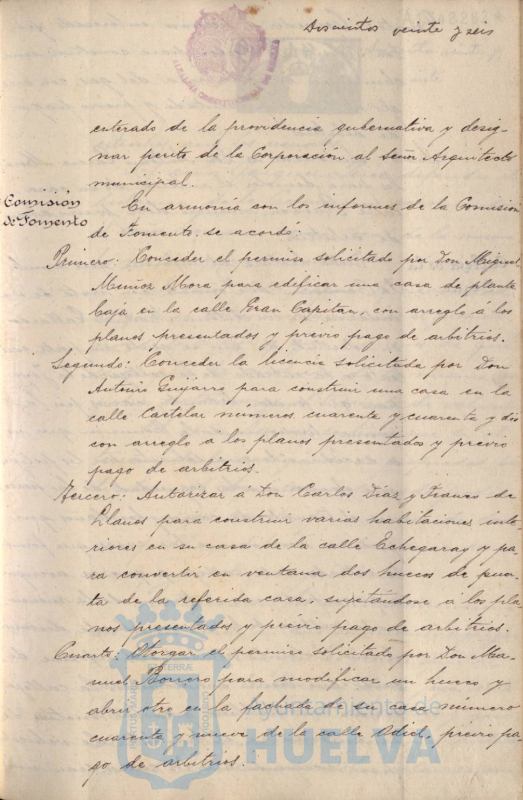 Doscientos veinte y seis
enterado de la providencia gubernativa y desig-
nar perito de la Corporación al Señor Arquitecto
municipal.
Comisión
de Fomento
En armonía con los informes de la Comisión
de Fomento, se acordó:
Primero: Conceder el permiso solicitado por Don Miguel
Muñoz Mora para edificar una casa de planta
baja en la calle Gran Capitan, con arreglo á los
planos presentados y previo pago de arbitrios.
Segundo: Conceder la licencia solicitada por Don
Antonio Guijarro para construir una casa en la
calle Castelar números cuarenta y cuarenta y dos
con arreglo á los planos presentados y previo
pago de arbitrios.
Tercero: Autorizar á Don Carlos Díaz y Franco de
Llanos para construir varias habitaciones inte-
riores en su casa de la calle Echegaray y pa-
ra convertir en ventana dos huecos de puer-
ta de la referida casa, sujetándose á los pla-
nos presentados y previo pago de arbitrios.
Cuarto: Otorgar el permiso solicitado por Don Ma-
nuel Borrero para modificar un hueco y
abrir otro en la fachada de su casa número
cuarenta y nueve de la calle Odiel, previo pa-
go de arbitrios.
Ayuntamiento de
HUELVA